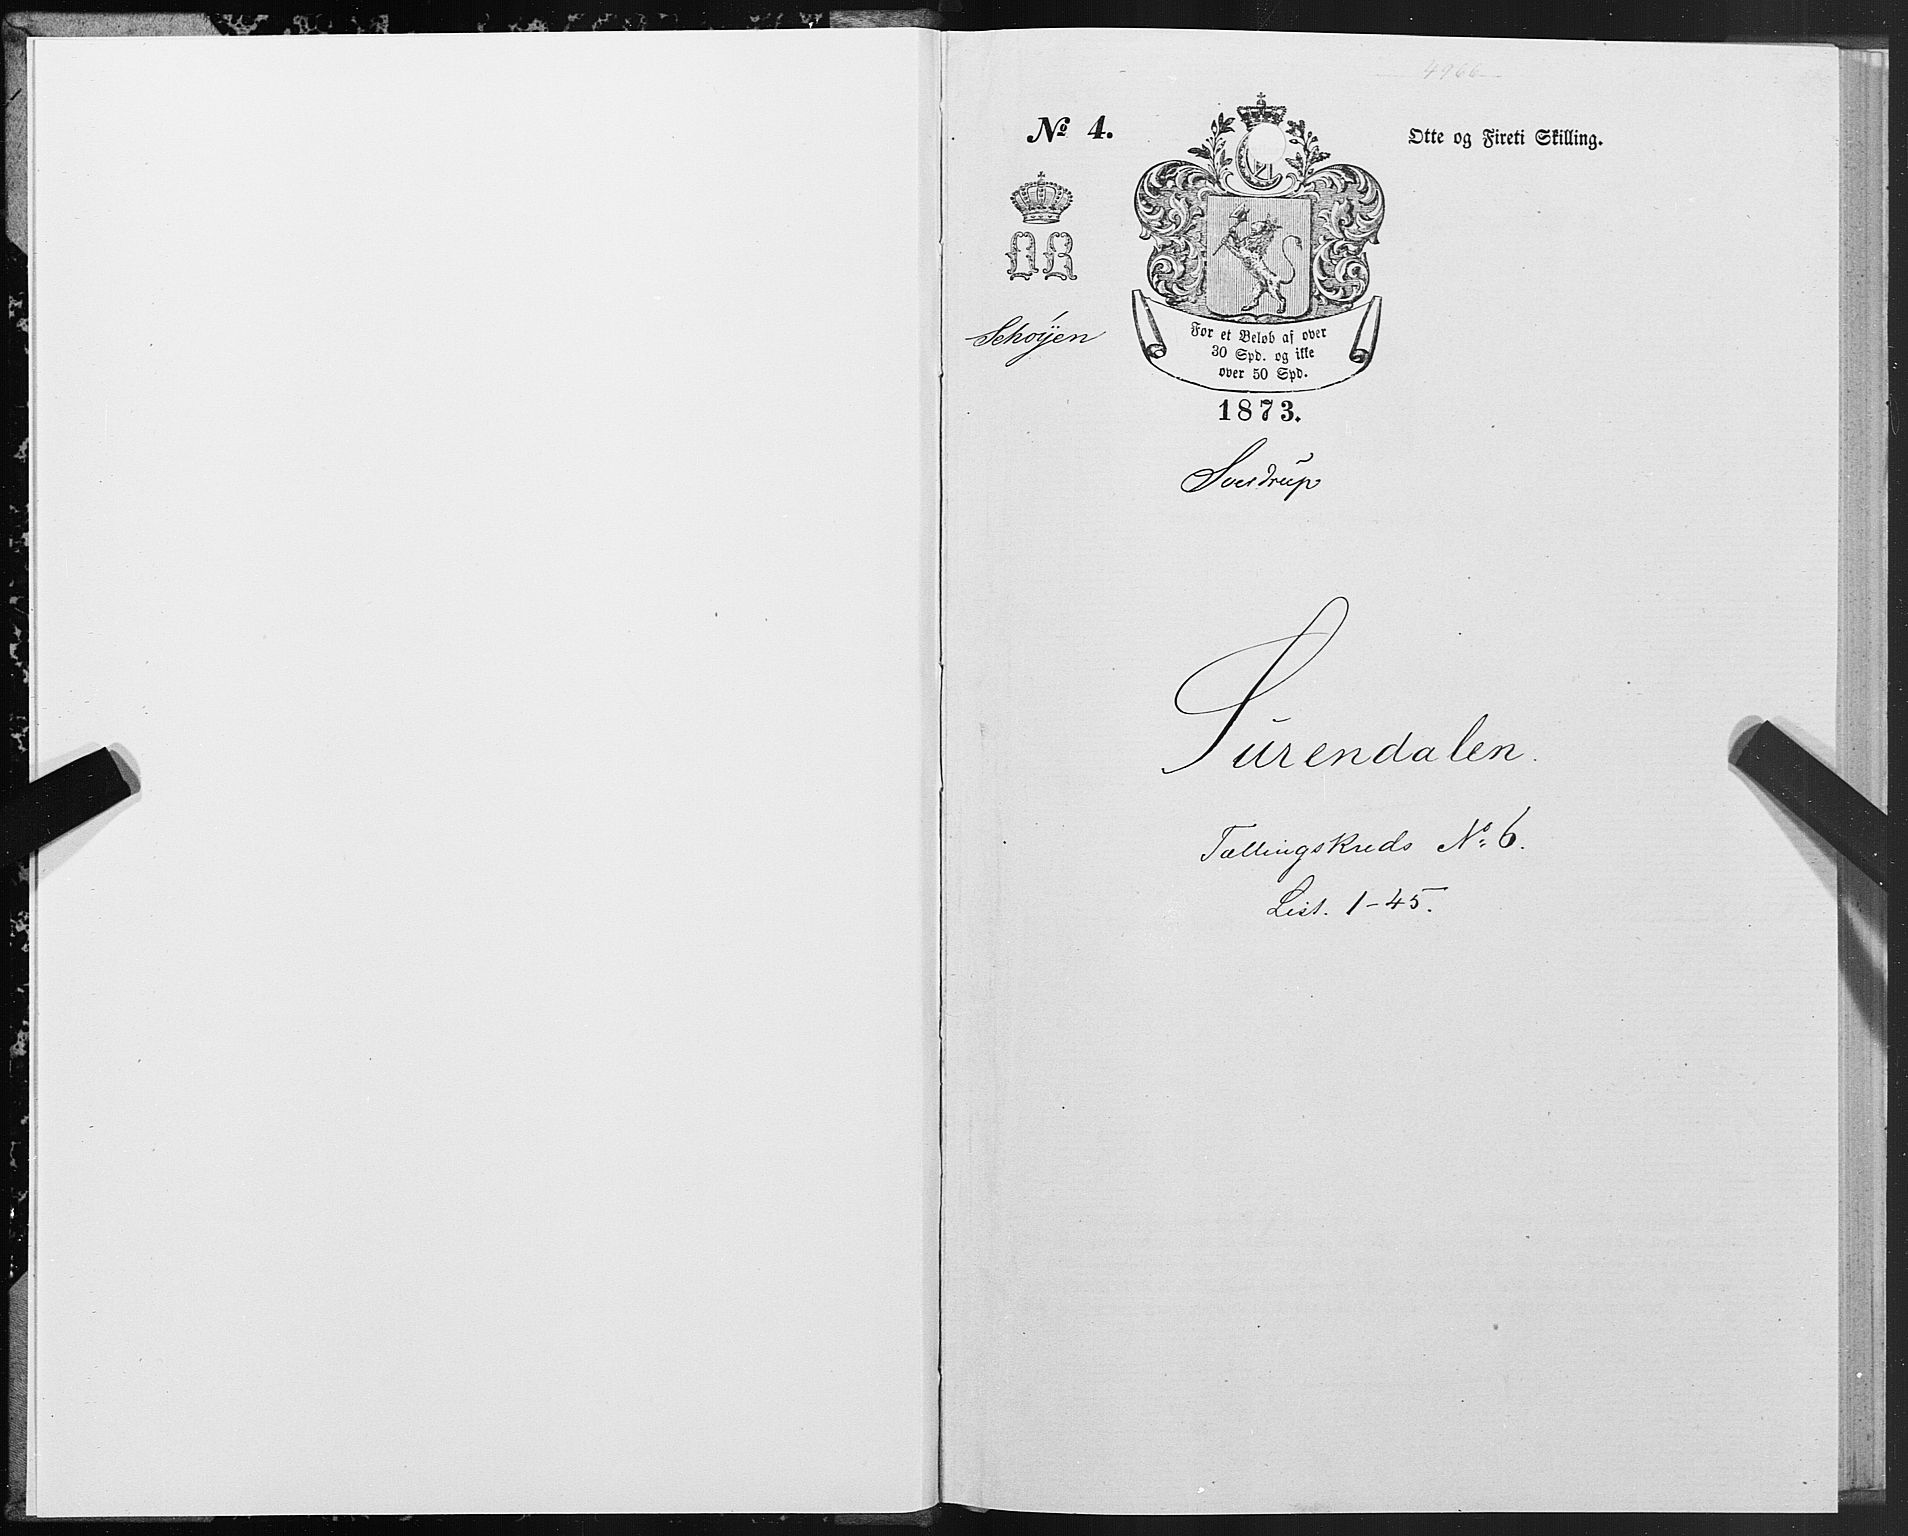 4966
No 4.
Otte og Fireti Skilling.
OR
Schoÿen
For et Beløb af over
30 Spd. og ikke
over 50 Spd.
1873.
Sverdrup
Surendalen.
Tællingskreds No. 6.
List. 1-45.